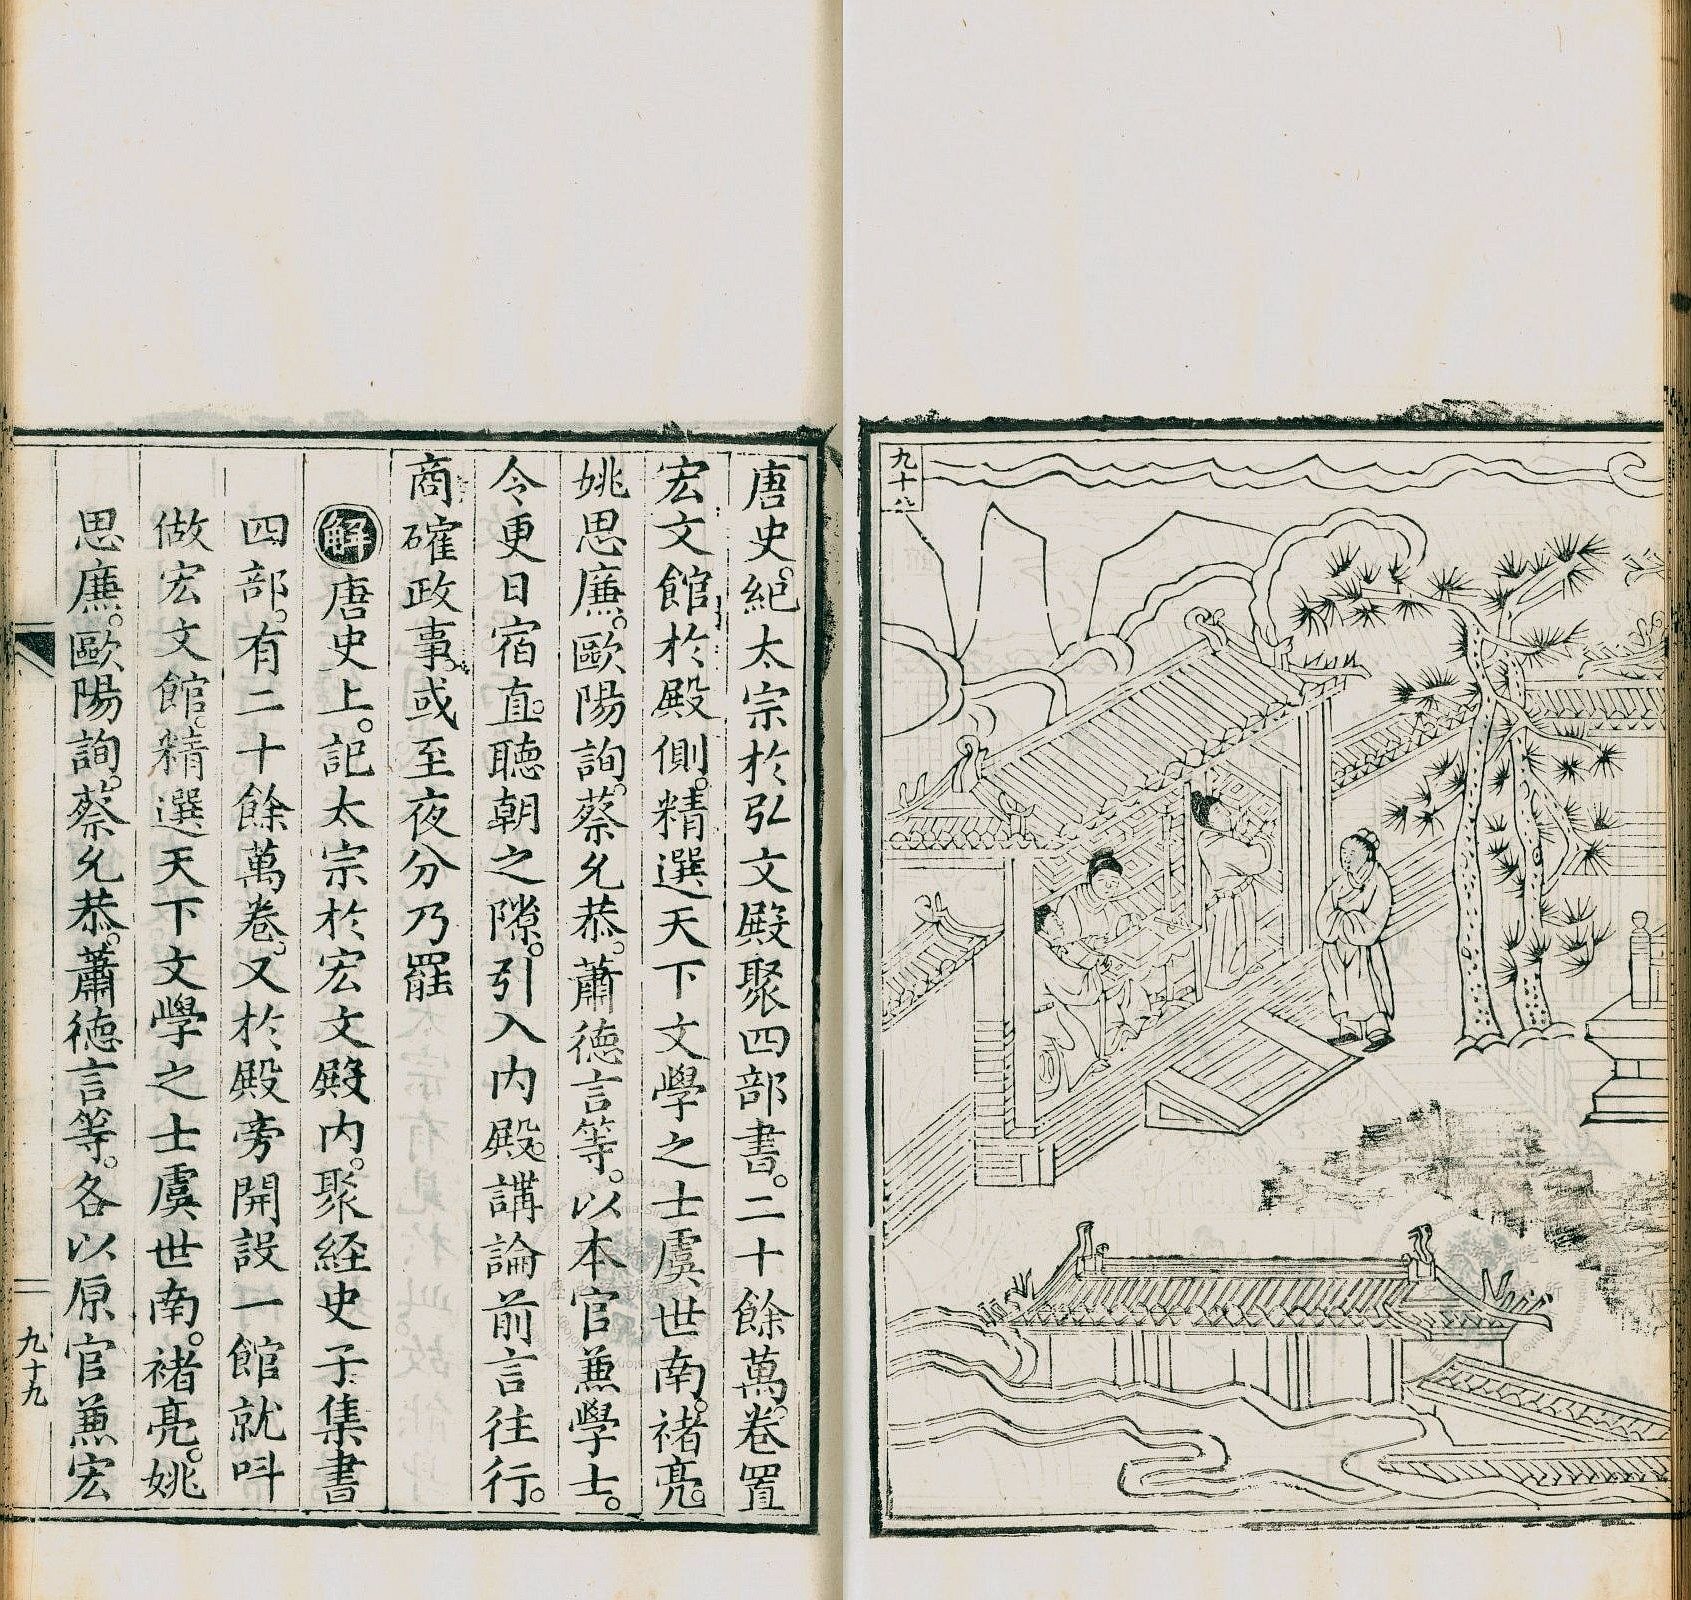 九十八
唐史。紀太宗於弘文殿聚四部書。二十餘萬卷。置
宏文館於殿側。精選天下文學之士虞世南。褚亮。
姚思廉。歐陽詢。蔡允恭。蕭德言等。以本官兼學士。
令更日宿直。聽朝之隙。引入内殿。講論前言往行。
商確政事。或至夜分乃罷
解唐史上。記太宗於宏文殿内。聚経史子集書
四部。有二十餘萬卷。又於殿旁開設一館就呌
做宏文館。精選天下文學之士虞世南。褚亮。姚
思廉。歐陽詢。蔡允恭。蕭德言等。各以原官兼宏
九十九